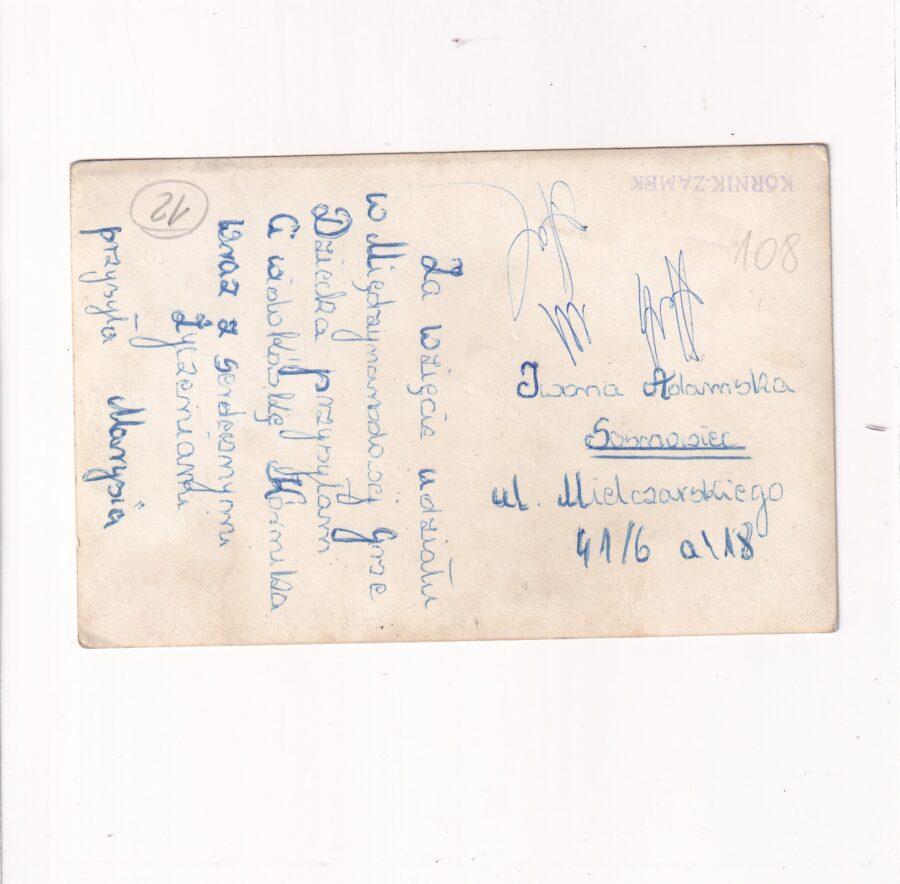 KÓRNIK-ZAMEK
108
12
Za wzięcie udziału
w Międzynarodowej Grze
Dziecka przysyłam
Ci widokówkę Kórnika
wraz z serdecznymi
życzeniami
przysyła Marysia
Iwona Adamska
Sosnowiec
ul. Mielczarskiego
41/6 a\18